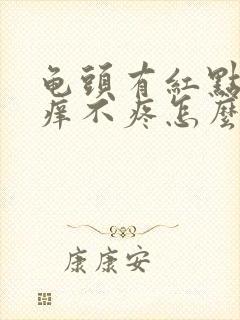 龟頭有紅點
痒不疼怎麼
康康安